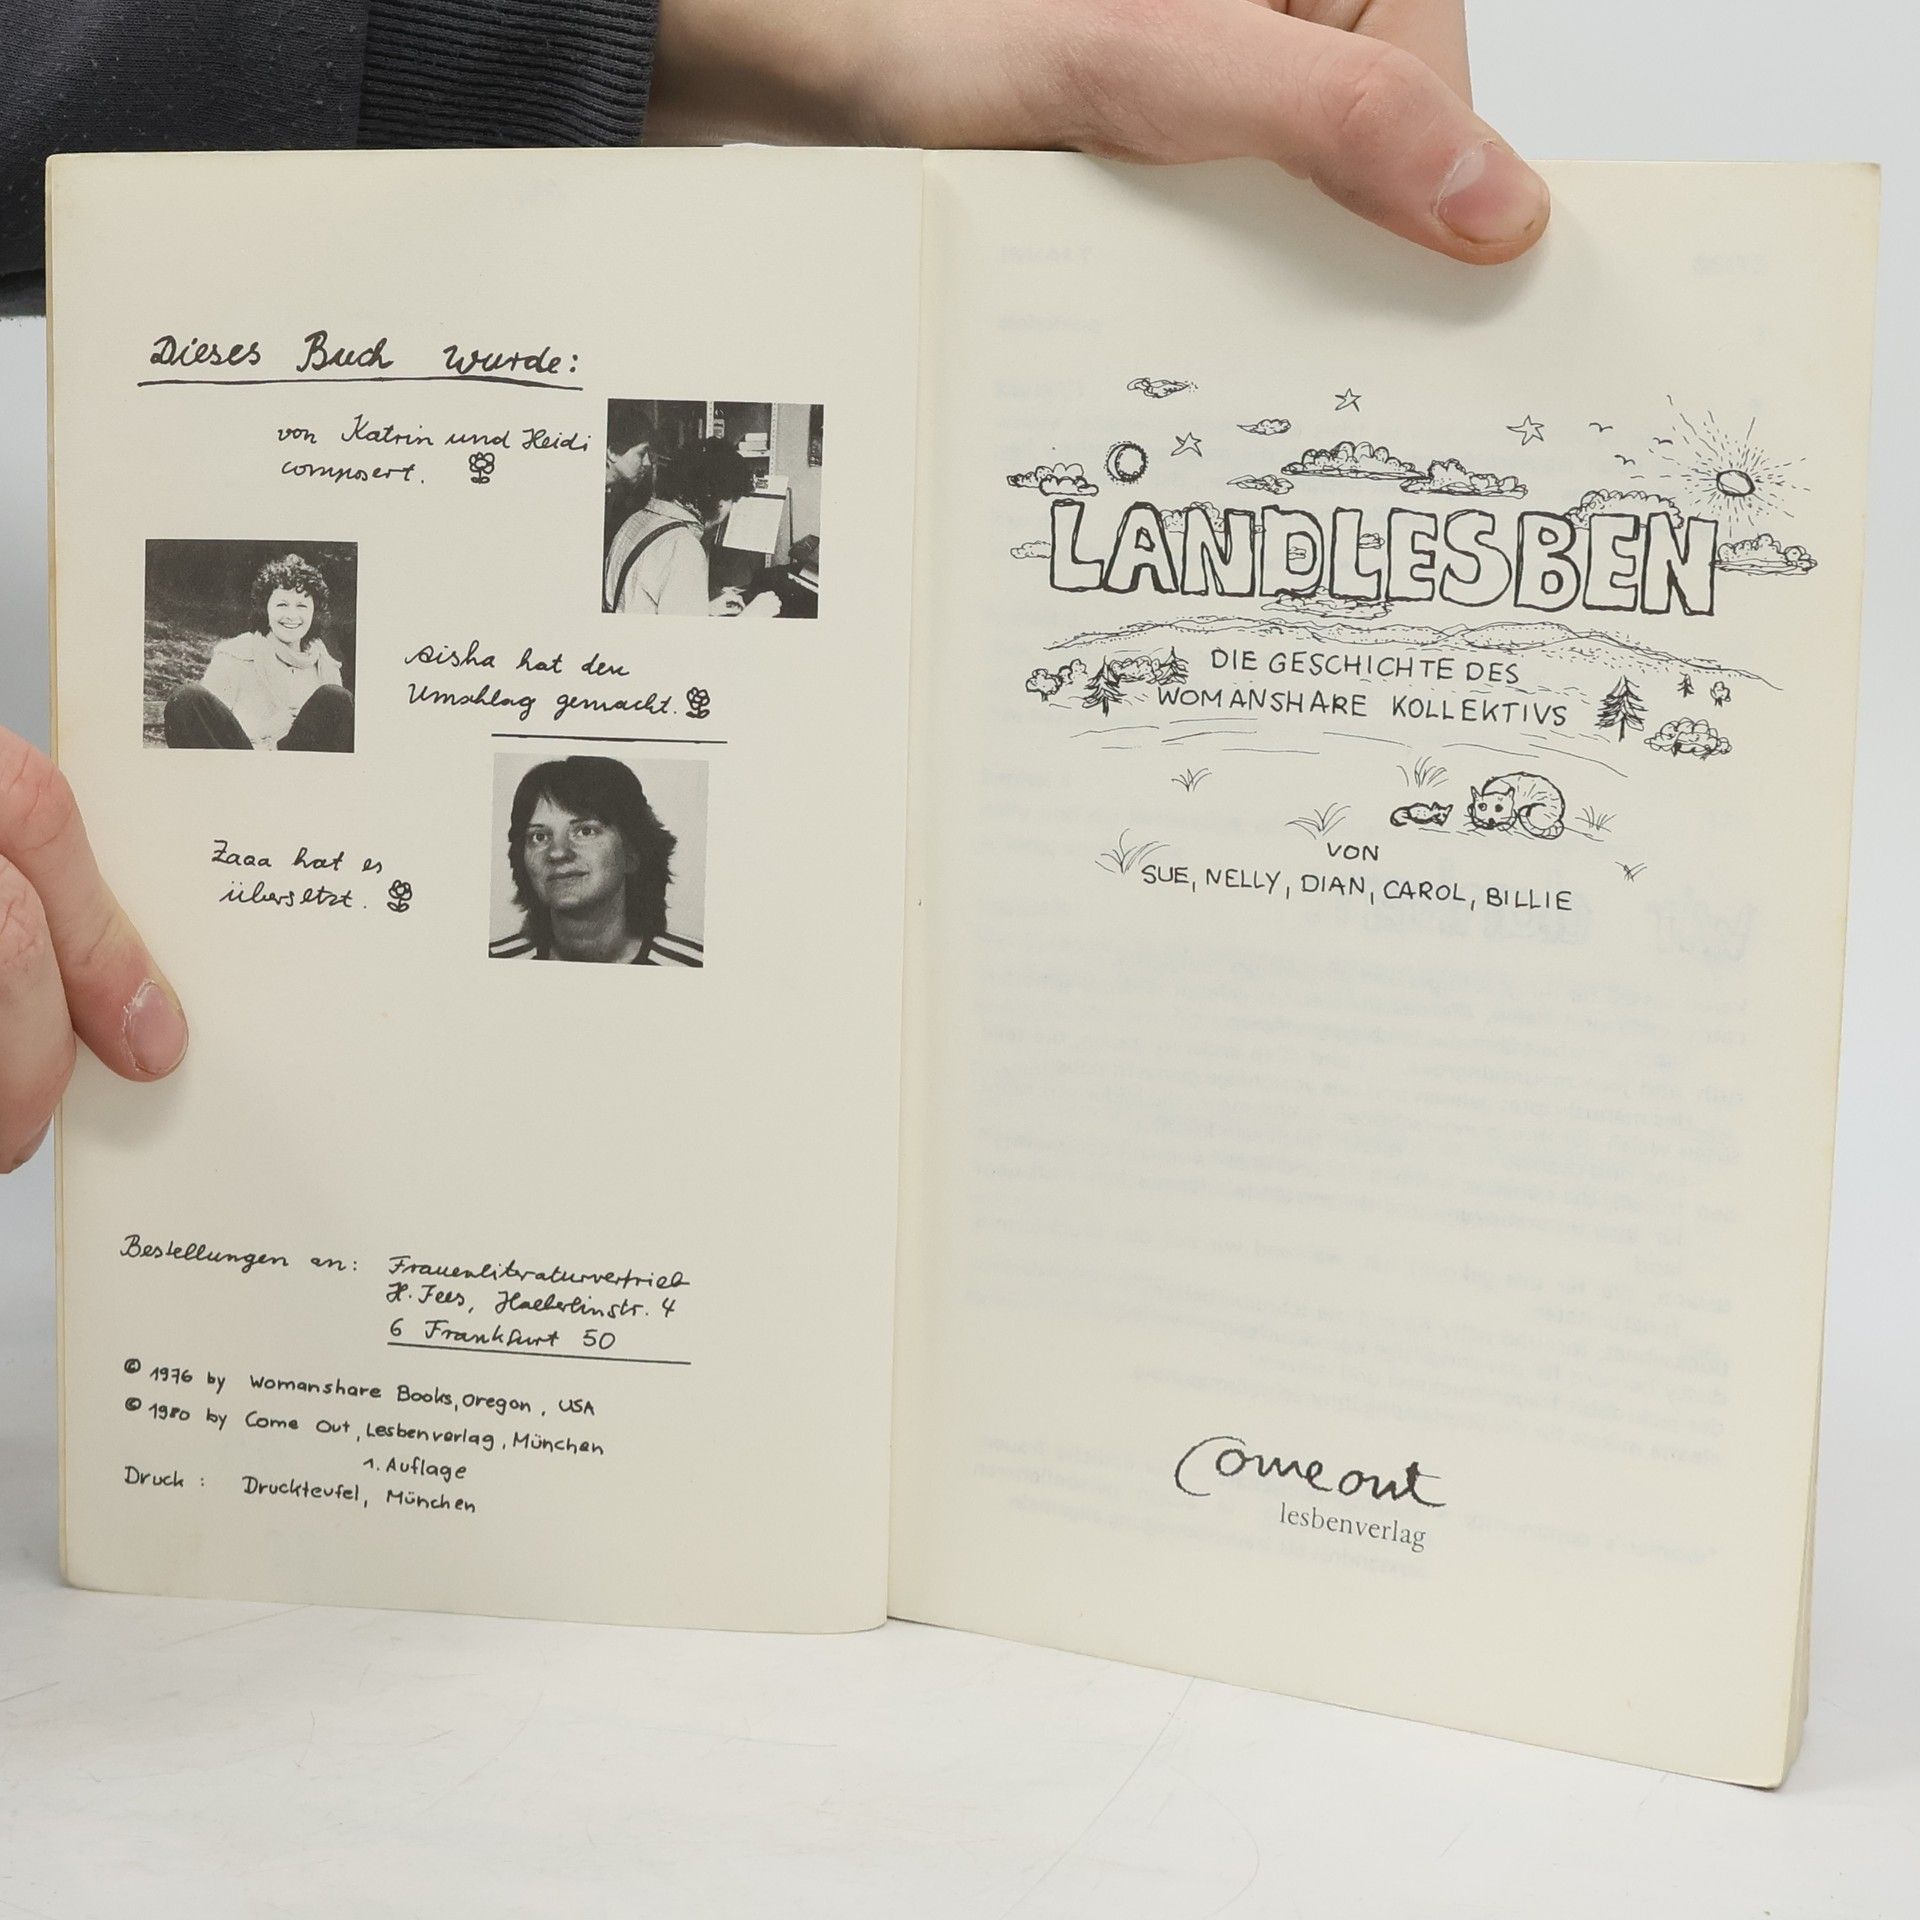 Dieses Buch wurde:
von Katrin und Heidi
composert.
Aisha hat den
Umschlag gemacht.
Zaaa hat es
übersetzt.
Bestellungen an: Frauenliteraturvertrieb
H. Fees, Haeberlinstr. 4
6 Frankfurt 50
© 1976 by Womanshare Books, Oregon, USA
© 1980 by Come Out, Lesbenverlag, München
1. Auflage
Druck: Druckteufel, München
LANDLESBEN
DIE GESCHICHTE DES
WOMANSHARE KOLLEKTIVS
VON
SUE, NELLY, DIAN, CAROL, BILLIE
Come out
lesbenverlag